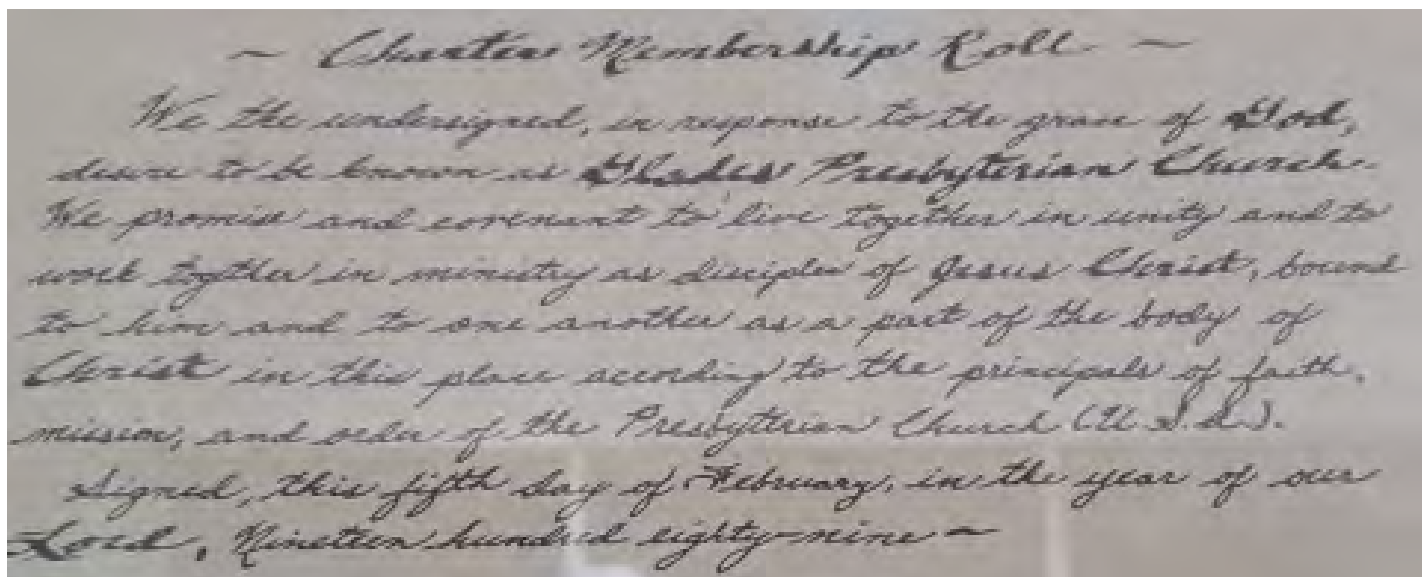 ~ Charter Membership Roll ~
We the undersigned, in response to the grace of God,
desire to be known as Glades Presbyterian Church.
We promise and covenant to live together in unity and to
work together in ministry as disciples of Jesus Christ, bound
to him and to one another as a part of the body of
Christ in this place according to the principals of faith,
mission, and order of the Presbyterian Church (U.S.A.).
Signed, this fifth day of February, in the year of our
Lord, Nineteen hundred eighty-nine ~